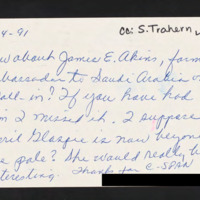 cc: S. Trahern
4-91
w about James E. Akins, form
bassador to Saudi Arabia o
call-in? If you have had
m I missed it. I suppose
ril Glaspie is now beyon
e pale? She would really b
teresting. Thanks for C-SPAN